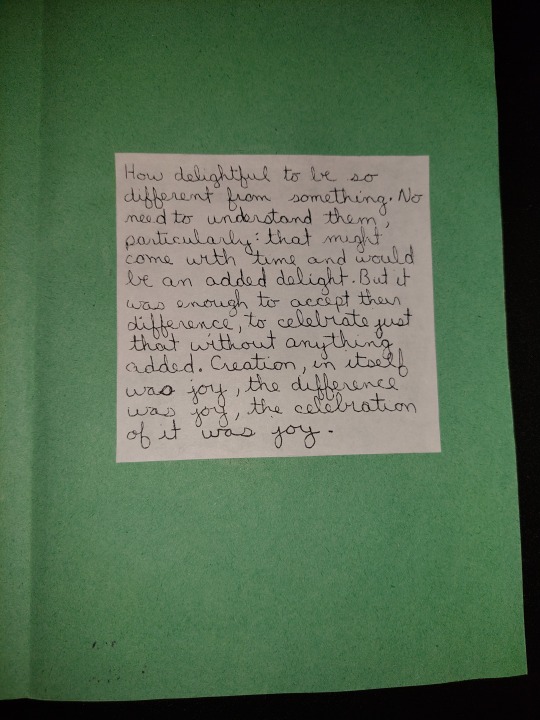 How delightful to be so
different from something. No
need to understand them,
particularly: that might
come with time and would
be an added delight. But it
was enough to accept their
difference, to celebrate just
that without anything
added. Creation, in itself
was joy, the difference
was joy, the celebration
of it was joy.